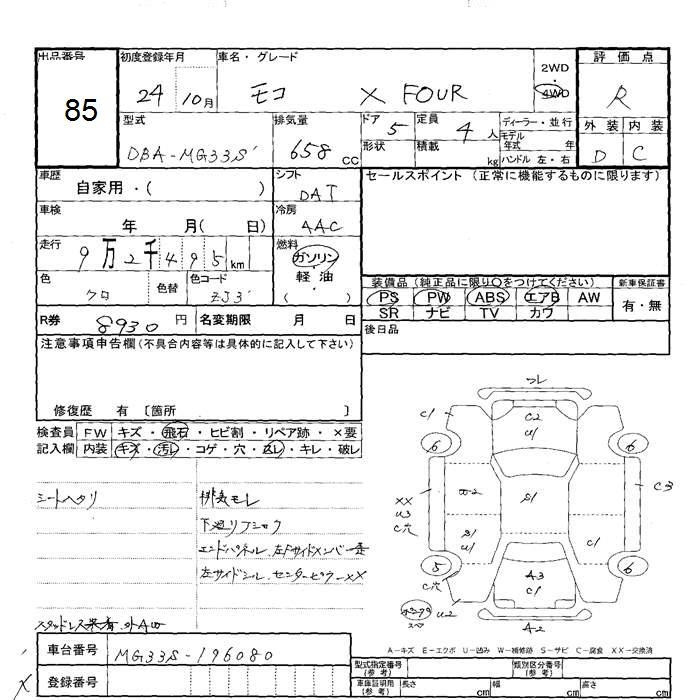 出品番号
初度登録年月
車名・グレード
2WD
・
4WD
評価点
85
24 10月
モコ X FOUR
R
型式
排気量
ドア 5
定員 4 人
ディーラー・並行
モデル年式 年
外装 内装
DBA-MG33S
658 cc
形状
積載 kg
ハンドル 左・右
D C
車歴
自家用・( )
シフト
DAT
セールスポイント(正常に機能するものに限ります)
車検
年 月( 日)
冷房
AAC
走行
9万2千495km
燃料
ガソリン
・
軽・油
( )
色
クロ
色替
色コード
ZJ3
装備品(純正品に限り○をつけてください)
新車保証書
PS PW ABS エアB AW
有・無
SR ナビ TV カワ
R券 8930 円
名変期限 月 日
後日品
注意事項申告欄(不具合内容等は具体的に記入して下さい)
修復歴 有 〔箇所 〕
検査員 FW キズ・飛石・ヒビ割・リペア跡・×要
記入欄 内装 キズ・汚レ・コゲ・穴・込レ・キレ・破レ
シートヘタリ
排気モレ
下廻リフショク
エンドパネル、左Fサイドメンバー歪
左サイドシル、センターピラーXX
ワレ
C1
C2
U1
6
6
XX
U3
C穴
S1
C3
S1
U1
C1
5
6
C穴
A3
C1
U2
A2
A-キズ E-エクボ U-凹み W-補修跡 S-サビ C-腐食 XX-交換済
車台番号 MG33S-196080
登録番号
型式指定番号
(参考)
類別区分番号
(参考)
車庫証明用
(参考)
長さ cm
幅 cm
高さ cm